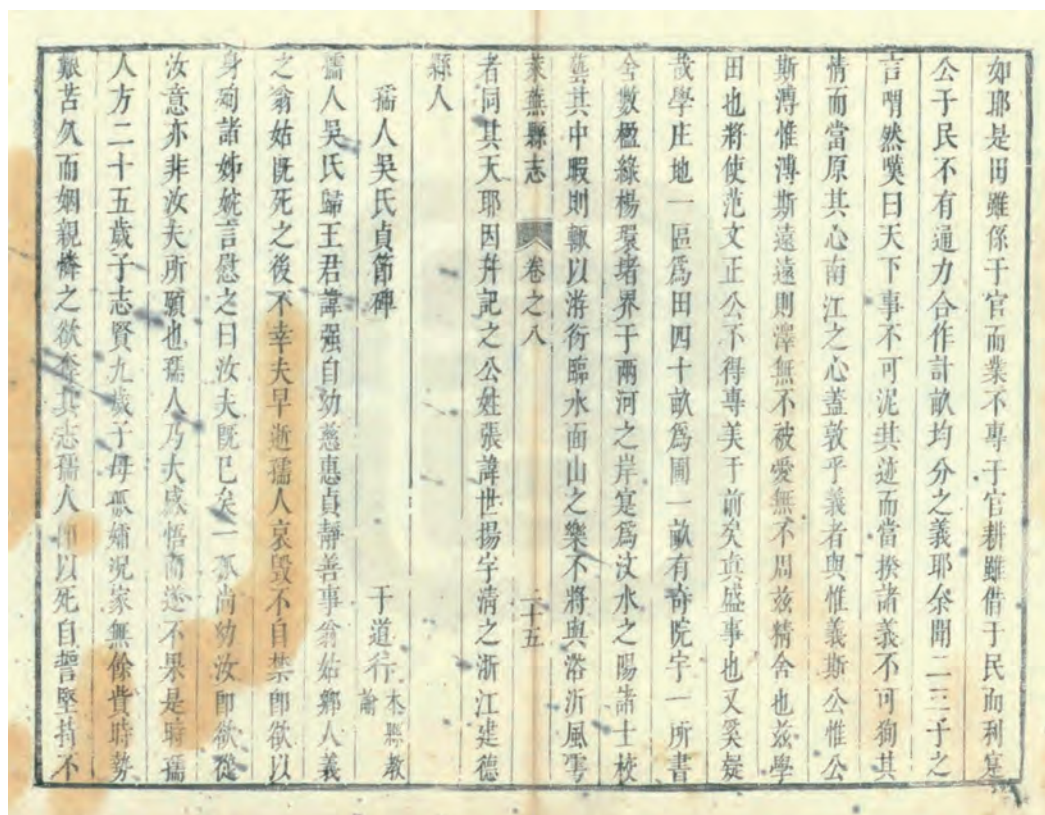 如耶是田雖係于官而業不專于官耕雖借于民而利寔
公于民不有通力合作計畝均分之義耶余聞二三子之
言喟然嘆曰天下事不可泥其迹而當揆諸義不可狥其
情而當原其心南江之心蓋敦乎義者與惟義斯公惟公
斯溥惟溥斯遠遠則澤無不被愛無不周茲精舍也茲學
田也將使范文正公不得專美于前矣真盛事也又奚疑
哉學庄地一區爲田四十畝爲圃一畝有奇院宇一所書
舍數楹綠楊環堵界于兩河之岸寔爲汶水之陽諸士校
藝其中暇則輒以游衍臨水面山之樂不將與浴沂風雩
萊蕪縣志 卷之八 二十五
者同其天耶因幷記之公姓張諱世揚字清之浙江建德
縣人
孺人吳氏貞節碑 于道行 本縣教諭
孺人吳氏歸王君諱强自幼慈惠貞靜善事翁姑鄉人義
之翁姑旣死之後不幸夫早逝孺人哀毀不自禁卽欲以
身殉諸姊娣言慰之曰汝夫旣巳矣一孤尚幼汝卽欲從
汝意亦非汝夫所願也孺人乃大感悟而遂不果是時孺
人方二十五歲子志賢九歲子母孤孀況家無餘貲時勢
艱苦久而姻親憐之欲奪其志孺人卽以死自誓堅持不